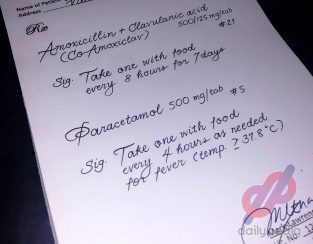 Name of Patient
Address
Rx
Amoxicillin + Clavulanic acid
(Co-Amoxiclav) 500/125 mg/tab
#21
Sig. Take one with food
every 8 hours for 7days
Paracetamol 500 mg/tab #5
Sig. Take one with food
every 4 hours as needed
for fever (temp. ≥ 37.8°C)